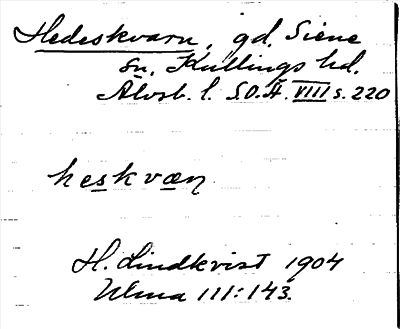 Hedeskvarn, gd, Siene
sn, Kullings hd.
Älvsb. l. S.O.Ä. VIII s. 220
heskvæṇ
H. Lindkvist 1904
Ulma 111:143.